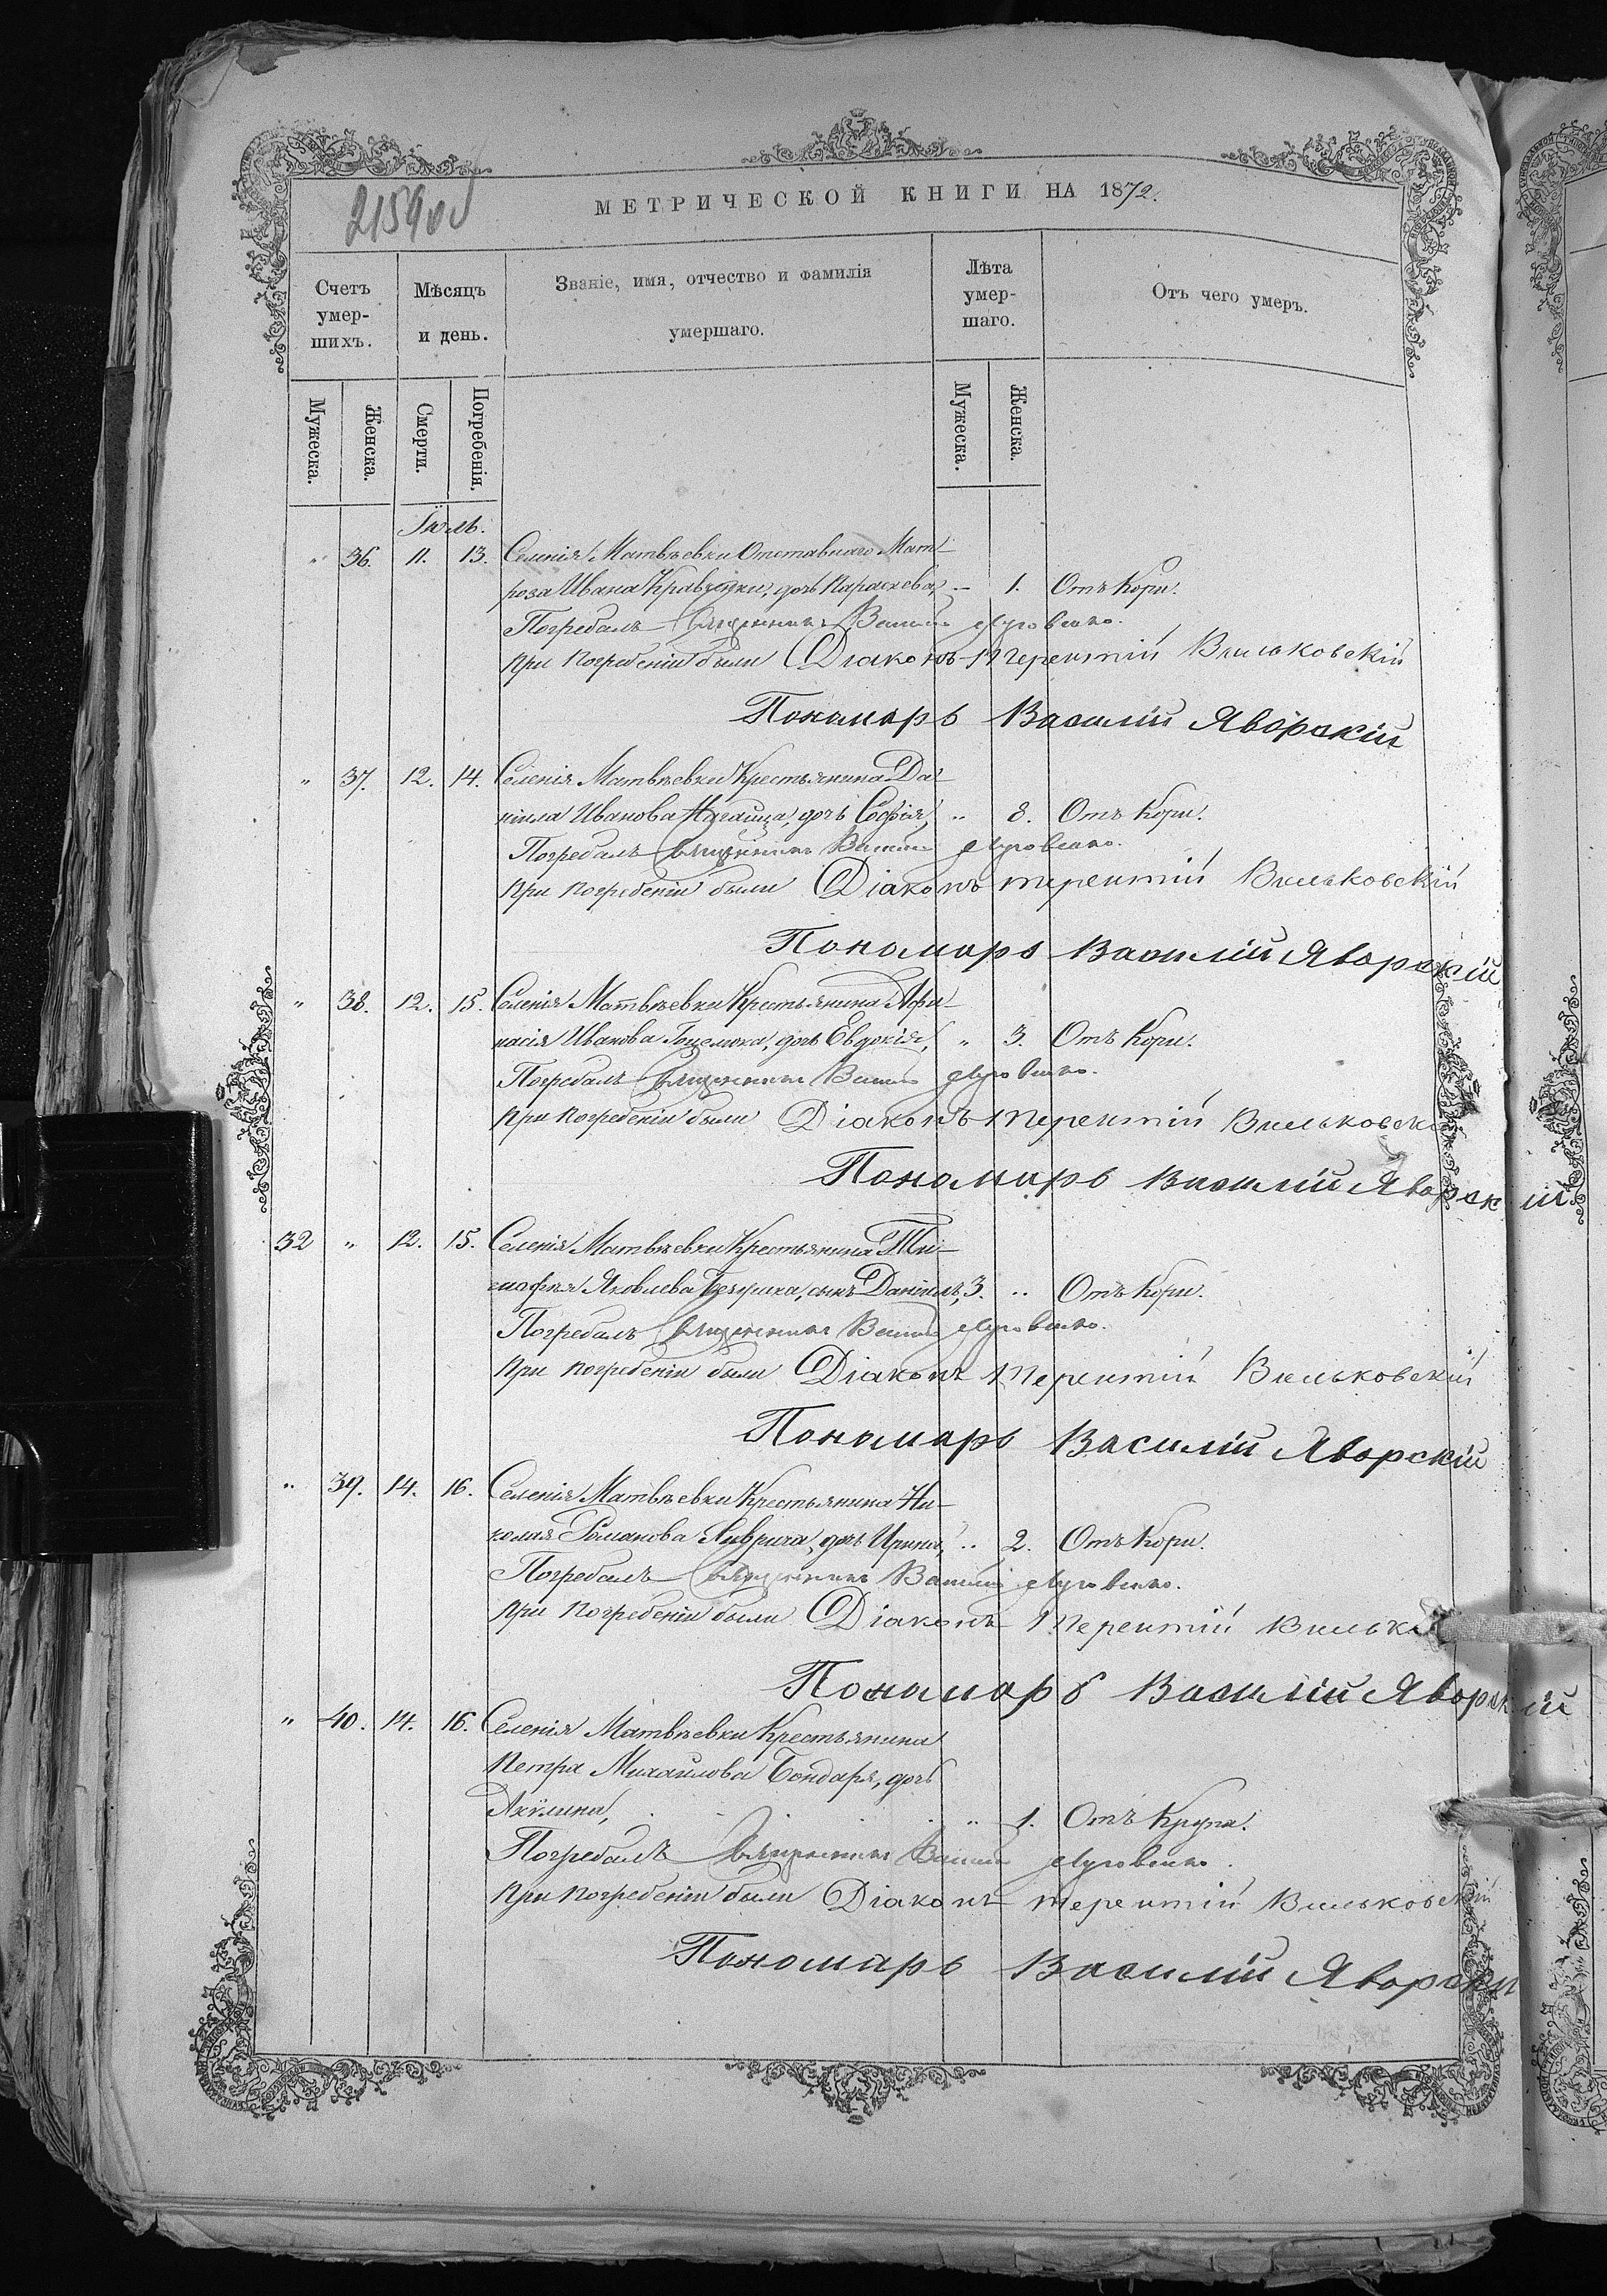 МЕТРИЧЕСКОЙ КНИГИ НА 1872.
Счетъ умер-шихъ.
Мѣсяцъ и день.
Званіе, имя, отчество и фамилія умершаго.
Лѣта умер-шаго.
Отъ чего умеръ.
Мужеска. Женска. Смерти. Погребенія. Мужеска. Женска.
Іюль.
" 36. 11. 13. Селенія Матвѣевки Отставнаго Мат-
роза Ивана Кравченки, дочь Параскева, – 1. Отъ Кори.
Погребалъ Священникъ Василій
при погребеніи были Діаконъ Терентій Вильковскій
Пономарь Василій Яворскій
" 37. 12. 14. Селенія Матвѣевки Крестьянина Да-
ніила Иванова дочь Софія, " 8. Отъ Кори.
Погребалъ Священникъ Василій
при погребеніи были Діаконъ Терентій Вильковскій
Пономарь Василій Яворскій
" 38. 12. 15. Селенія Матвѣевки Крестьянина Афа-
насія Иванова дочь Евдокія, " 3. Отъ Кори.
Погребалъ Священникъ Василій
при погребеніи были Діаконъ Терентій Вильковскій
Пономарь Василій Яворскій
32 " 12. 15. Селенія Матвѣевки Крестьянина Ти-
мофея Яковлева сынъ Даніилъ, 3. " Отъ Кори.
Погребалъ Священникъ Василій
при погребеніи были Діаконъ Терентій Вильковскій
Пономарь Василій Яворскій
" 39. 14. 16. Селенія Матвѣевки Крестьянина Ни-
колая Романова дочь Ирина, " 2. Отъ Кори.
Погребалъ Священникъ Василій
при погребеніи были Діаконъ Терентій
Пономарь Василій Яворскій
" 40. 14. 16. Селенія Матвѣевки Крестьянина
Петра Михайлова Бондаря, дочь
Акулина, " 1. Отъ Крупа.
Погребалъ Священникъ Василій
при погребеніи были Діаконъ Терентій Вильковскій
Пономарь Василій Яворскій